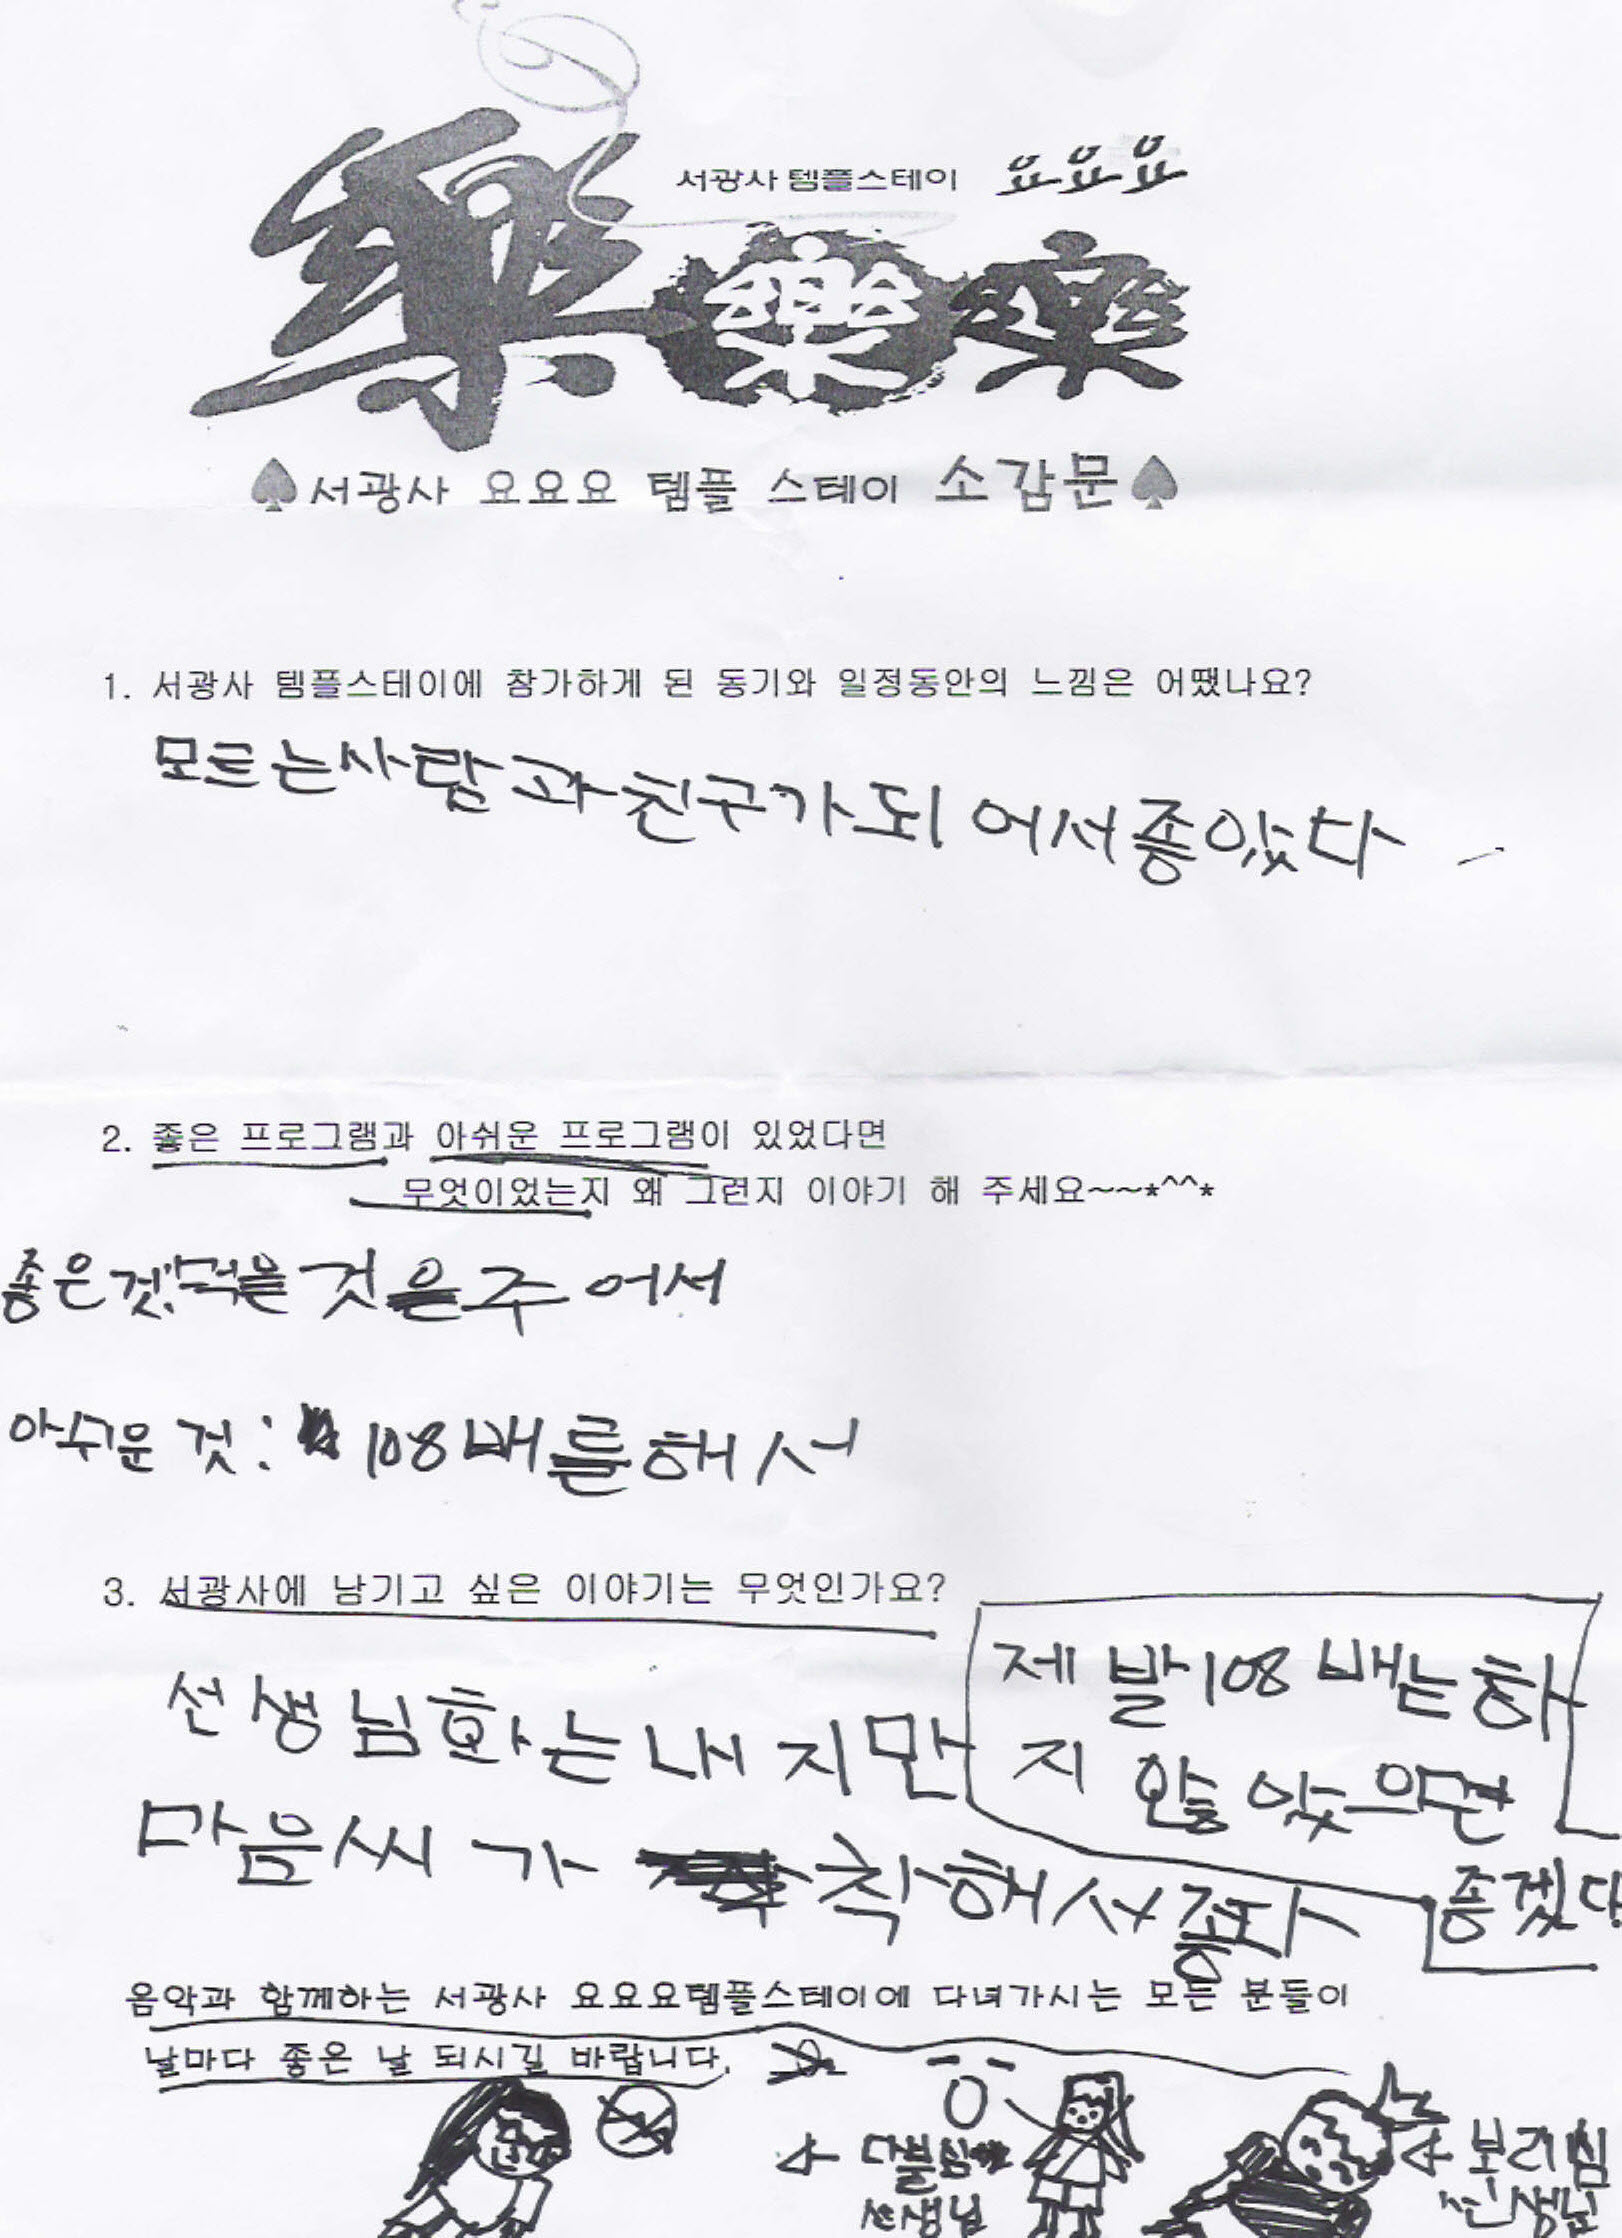 서광사 템플스테이 요요요
樂 樂 樂
♠서광사 요요요 템플 스테이 소감문♠
1. 서광사 템플스테이에 참가하게 된 동기와 일정동안의 느낌은 어땠나요?
모르는사람과친구가되어서좋았다
2. 좋은 프로그램과 아쉬운 프로그램이 있었다면
무엇이었는지 왜 그런지 이야기 해 주세요~~*^^*
좋은것:먹을것을주어서
아쉬운것: 108배를해서
3. 서광사에 남기고 싶은 이야기는 무엇인가요?
선생님화는내지만
마음씨가 착해서좋다
제발108배는하
지 않았으면
좋겠다.
음악과 함께하는 서광사 요요요템플스테이에 다녀가시는 모든 분들이
날마다 좋은 날 되시길 바랍니다.
선생님
보리심
선생님